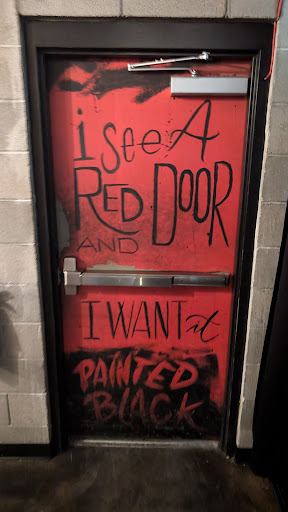 i see A
RED DOOR
AND
I WANT it
PAINTED
BLACK